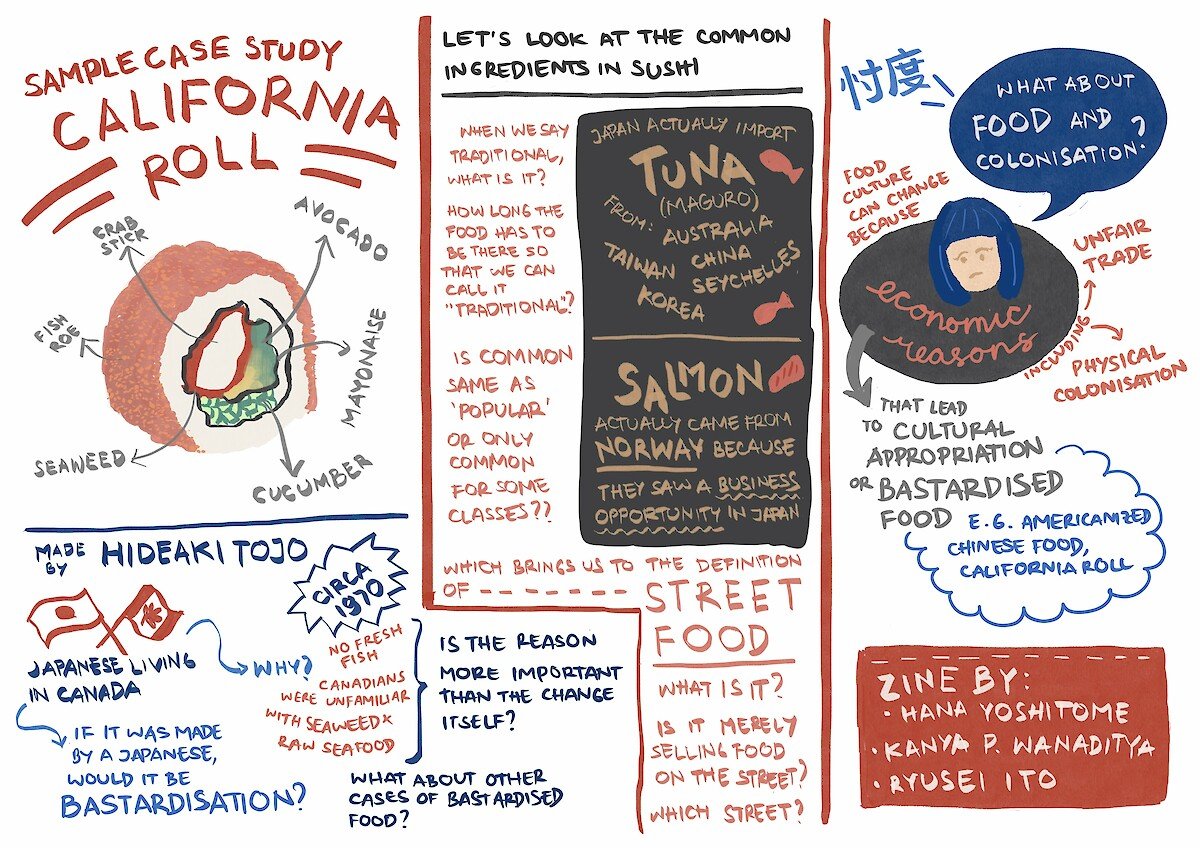 SAMPLE CASE STUDY
CALIFORNIA
ROLL
CRAB
STICK
AVOCADO
FISH
ROE
MAYONAISE
SEAWEED
CUCUMBER
MADE
BY
HIDEAKI TOJO
CIRCA
1970
JAPANESE LIVING
IN CANADA
WHY?
NO FRESH
FISH
CANADIANS
WERE UNFAMILIAR
WITH SEAWEED &
RAW SEAFOOD
IF IT WAS MADE
BY A JAPANESE,
WOULD IT BE
BASTARDISATION?
IS THE REASON
MORE IMPORTANT
THAN THE CHANGE
ITSELF?
WHAT ABOUT OTHER
CASES OF BASTARDISED
FOOD?
LET'S LOOK AT THE COMMON
INGREDIENTS IN SUSHI
WHEN WE SAY
TRADITIONAL,
WHAT IS IT?
HOW LONG THE
FOOD HAS TO
BE THERE SO
THAT WE CAN
CALL IT
"TRADITIONAL"?
IS COMMON
SAME AS
'POPULAR'
OR ONLY
COMMON
FOR SOME
CLASSES??
JAPAN ACTUALLY IMPORT
TUNA
(MAGURO)
FROM: AUSTRALIA
TAIWAN CHINA
SEYCHELLES
KOREA
SALMON
ACTUALLY CAME FROM
NORWAY BECAUSE
THEY SAW A BUSINESS
OPPORTUNITY IN JAPAN
WHICH BRINGS US TO THE DEFINITION
OF - - - - - - - - STREET
FOOD
WHAT IS IT?
IS IT MERELY
SELLING FOOD
ON THE STREET?
WHICH STREET?
忖度
WHAT ABOUT
FOOD AND
COLONISATION?
FOOD
CULTURE
CAN CHANGE
BECAUSE
economic
reasons
INCLUDING
UNFAIR
TRADE
PHYSICAL
COLONISATION
THAT LEAD
TO CULTURAL
APPROPRIATION
OR BASTARDISED
FOOD
E.G. AMERICANIZED
CHINESE FOOD,
CALIFORNIA ROLL
ZINE BY:
• HANA YOSHITOME
• KANYA P. WANADITYA
• RYUSEI ITO